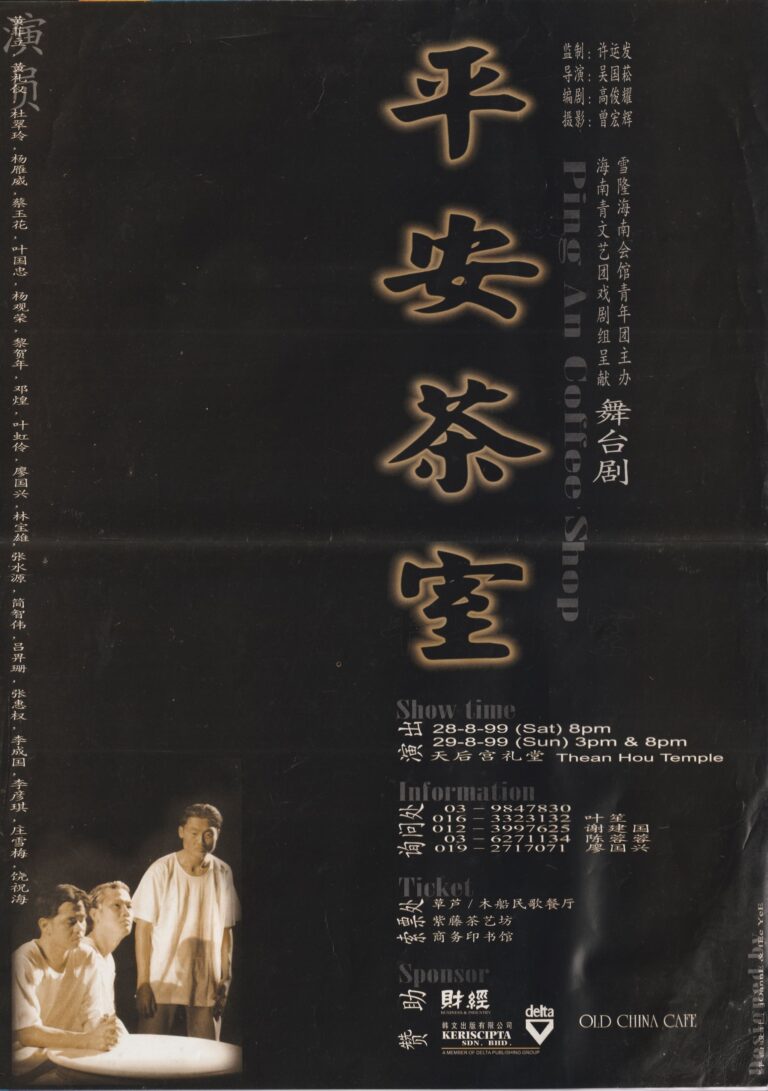 监制：许运发
导演：吴国菘
编剧：高俊耀
摄影：曾宏辉
雪隆海南会馆青年团主办
海南青文艺团戏剧组呈献
舞台剧
Ping An Coffee Shop
平安茶室
演员
杜翠玲，杨雁威，蔡玉花，叶国忠，杨观荣，黎贺年，邓煌，叶虹伶，廖国兴，林宝雄，张水源，简智伟，吕昇珊，张惠权，李成国，李彦琪，庄雪梅，饶祝海
Show time
演出
28-8-99 (Sat) 8pm
29-8-99 (Sun) 3pm & 8pm
天后宫礼堂 Thean Hou Temple
Information
询问处
03 – 9847830
016 – 3323132 叶笙
012 – 3997625 谢建国
03 – 6271134 陈蓉蓉
019 – 2717071 廖国兴
Ticket
索票处
草芦 / 木船民歌餐厅
紫藤茶艺坊
商务印书馆
Sponsor
赞助
財經
BUSINESS & INDUSTRY
韩文出版有限公司
KERISCIPTA
SDN. BHD.
A MEMBER OF DELTA PUBLISHING GROUP
delta
OLD CHINA CAFE
Designed by